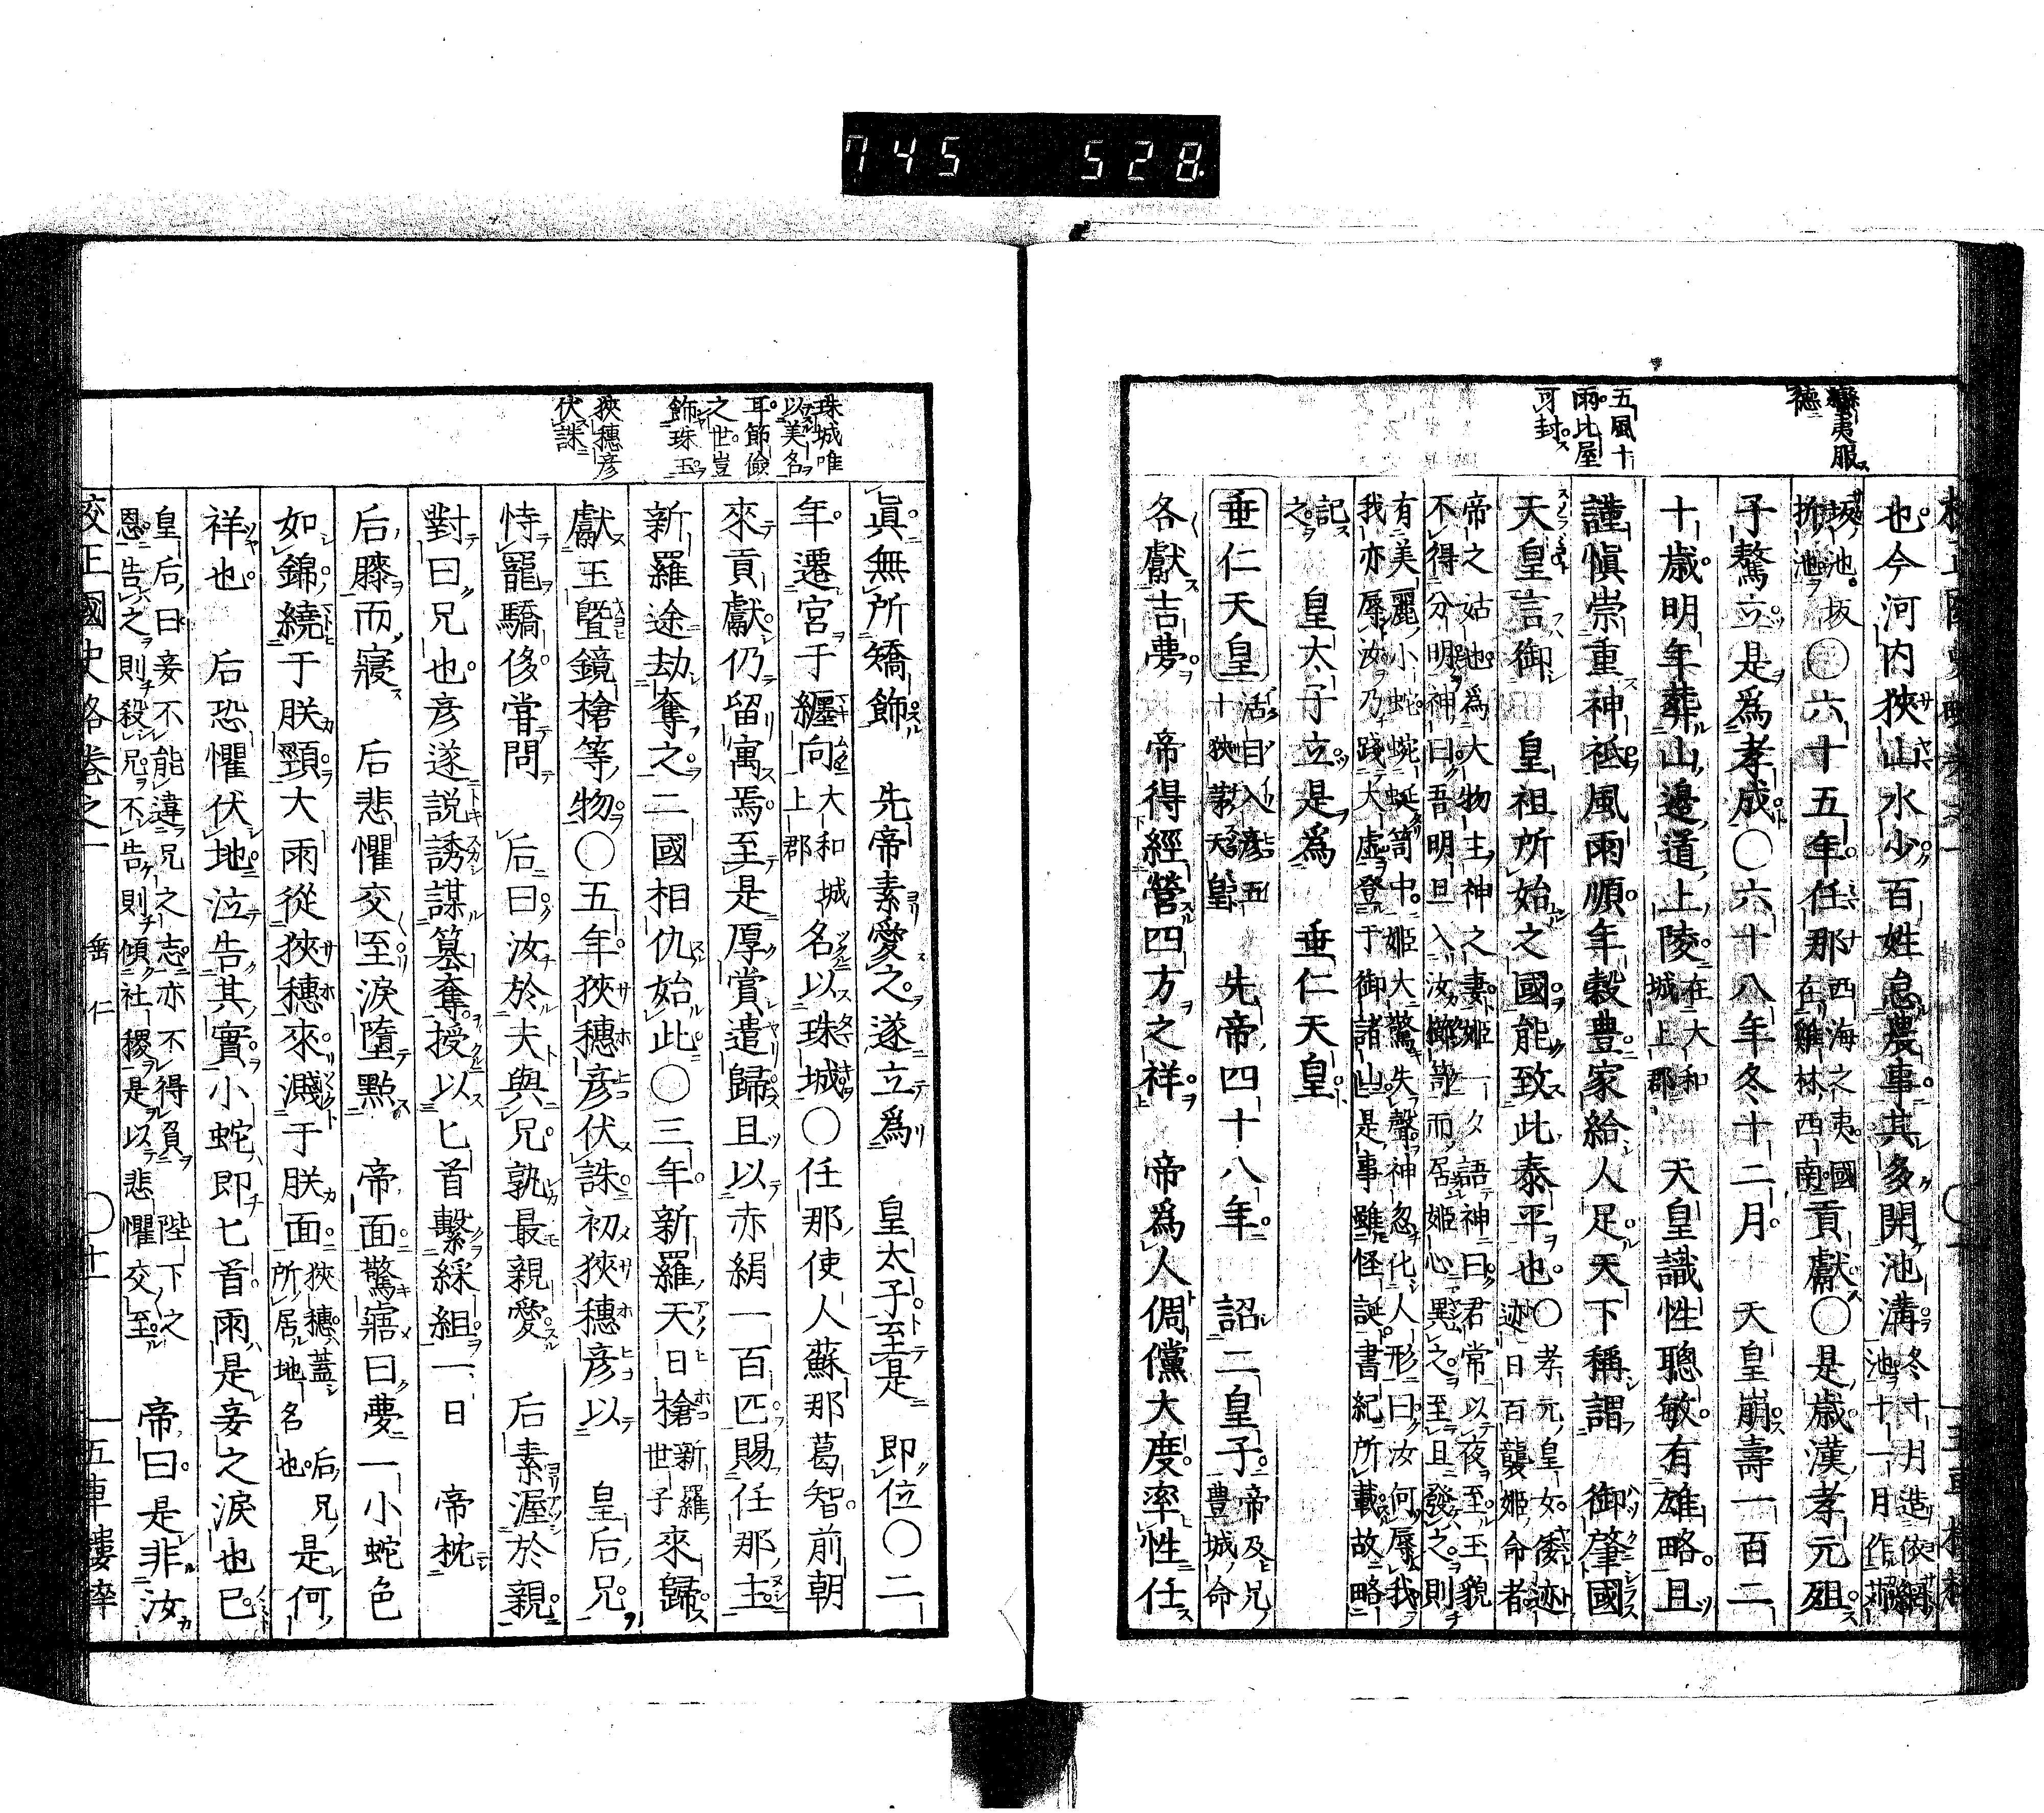 745 528
蠻夷服
德
五風十
雨比屋
可封
也今河內狹山水少百姓怠農事其多開池溝冬十月造依網池十一月作苅
坂池坂折池○六十五年任那西海之夷國在雞林西南貢獻○是歲漢孝元殂
子驁立是爲孝成○六十八年冬十二月 天皇崩壽一百二
十歲明年葬山邊道上陵在大和城上郡 天皇識性聰敏有雄略且
謹愼崇重神祇風雨順年穀豊家給人足天下稱謂 御肇國
天皇言御 皇祖所始之國能致此泰平也○孝元皇女倭迹迹日百襲姬命者
帝之姑也爲大物主神之妻姬一夕語神曰君常以夜至玉貌
不得分明神曰吾明旦入汝櫛笥而居姬心異之至旦發之則
有美麗小蛇蜿蜒笥中姬大驚失聲神忽化人形曰汝何辱我
我亦辱汝乃踐大虛登于御諸山是事雖怪誕書紀所載故略
記之 皇太子立是爲 垂仁天皇
垂仁天皇 活目入彥五十狹茅天皇 先帝四十八年 詔二皇子帝及兄豊城命
各獻吉夢 帝得經營四方之祥 帝爲人倜儻大度率性任
珠城唯
以美名
耳節儉
之世豈
飾珠玉
狹穗彥
伏誅
眞無所矯飾 先帝素愛之遂立爲 皇太子至是 卽位○二
年遷宮于纏向大和城上郡名以珠城○任那使人蘇那葛智前朝
來貢獻仍留寓焉至是厚賞遣歸且以赤絹一百匹賜任那主
新羅途劫奪之二國相仇始此○三年新羅天日槍新羅世子來歸
獻玉曁鏡槍等物○五年狹穗彥伏誅初狹穗彥以 皇后兄
恃寵驕侈嘗問 后曰汝於夫與兄孰最親愛 后素渥於親
對曰兄也彥遂說誘謀簒奪授以匕首繫綵組一日 帝枕
后膝而寢 后悲懼交至淚墮點 帝面驚寤曰夢一小蛇色
如錦繞于朕頸大雨從狹穗來濺于朕面狹穗蓋所居地名也后兄是何
祥也 后恐懼伏地泣告其實小蛇卽匕首雨是妾之淚也已
皇后曰妾不能違兄之志亦不得負 陛下之
恩告之則殺兄不告則傾社稷是以悲懼交至 帝曰是非汝
校正國史略卷之一 垂仁 ○十一 五車樓梓